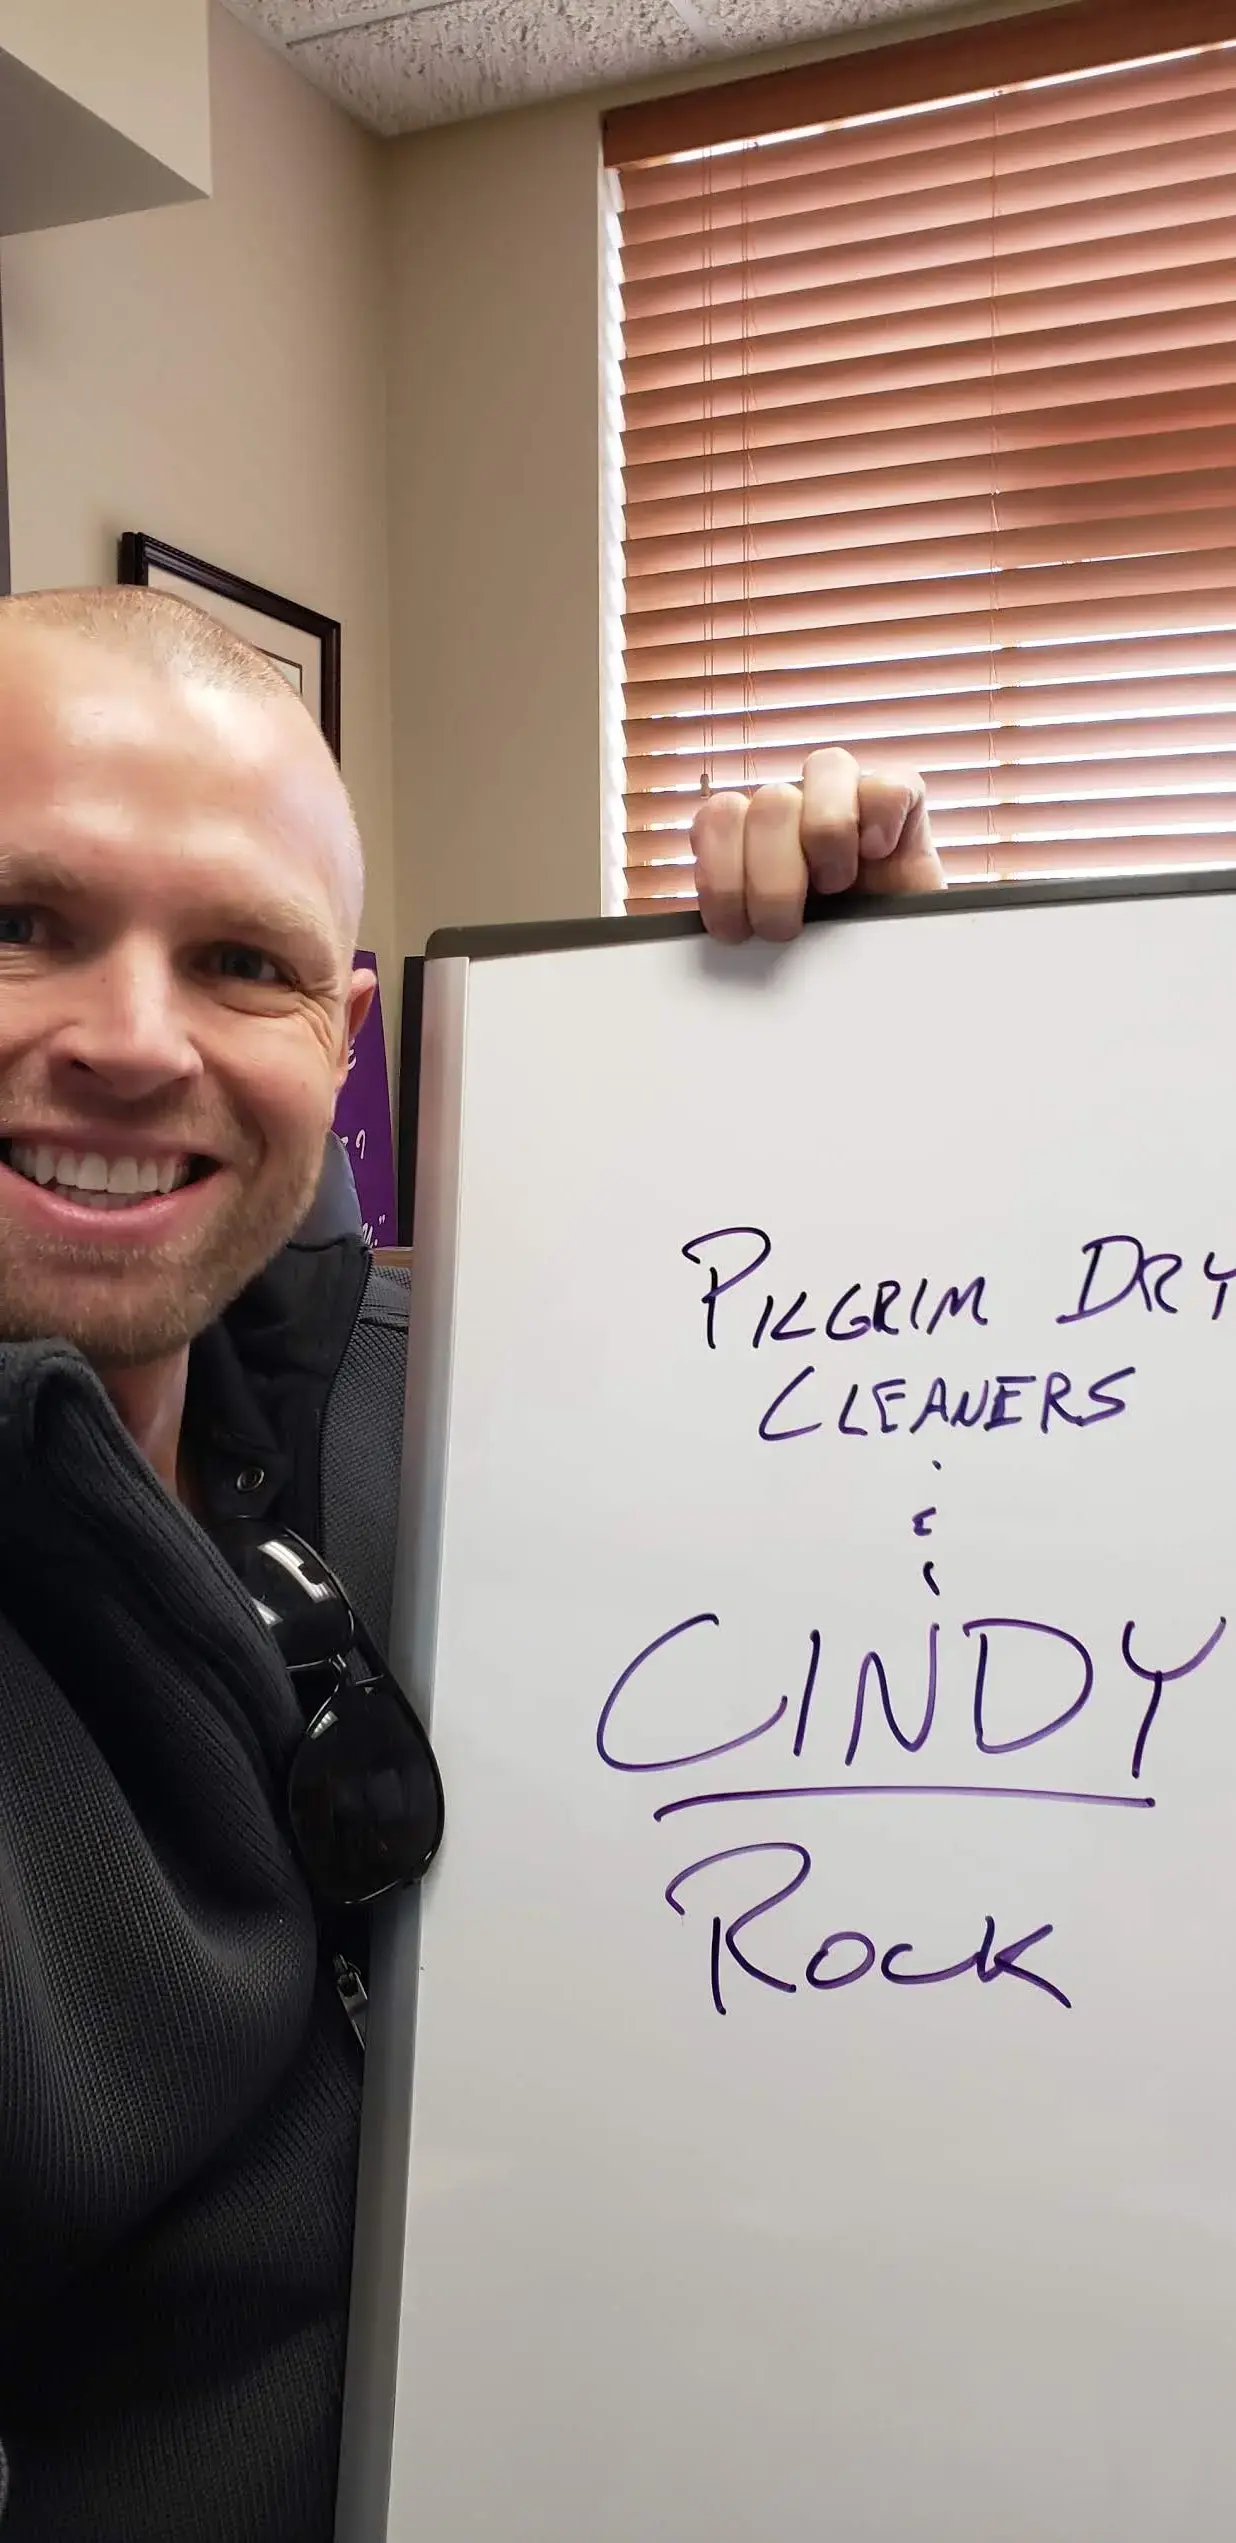 PILGRIM DRY
CLEANERS
&
CINDY
ROCK